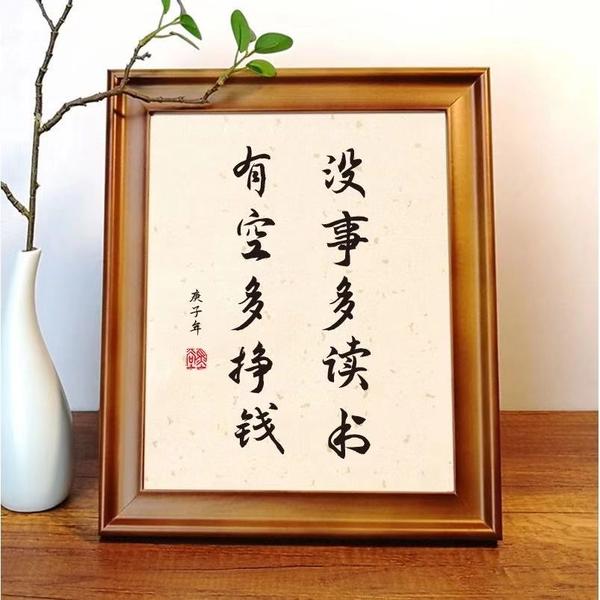 没事多读书
有空多挣钱
庚子年